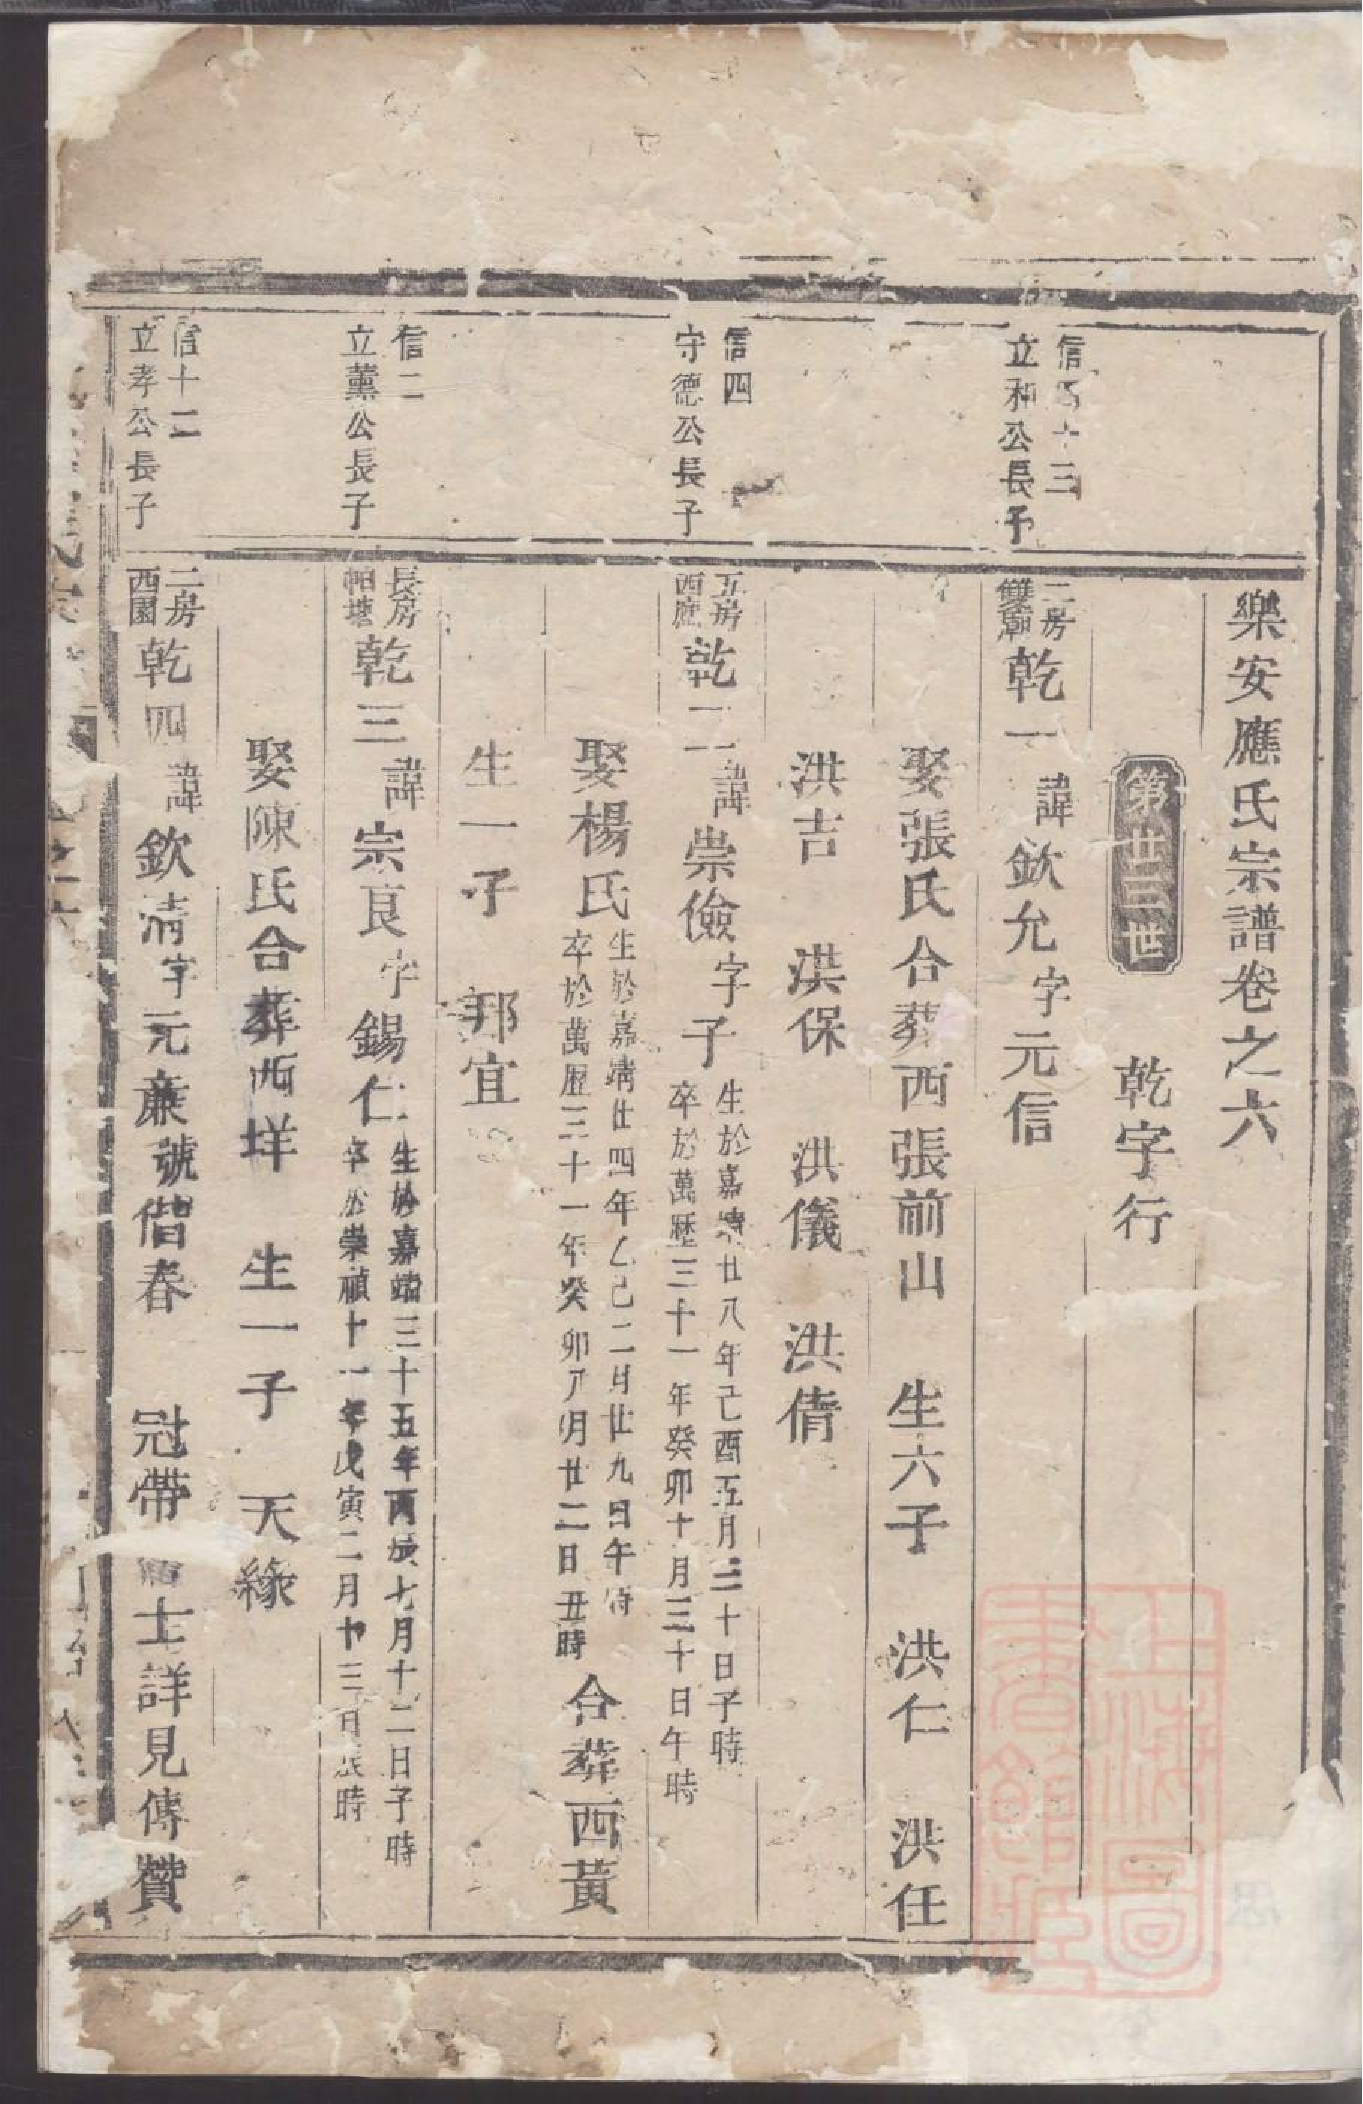 樂安應氏宗譜卷之六
第廿三世 乾字行
信 十三
立和公長子
二房
雙廟
乾一 諱欽允字元信
娶張氏合葬西張前山 生六子 洪仁 洪任
洪吉 洪保 洪儀 洪倩
信四
守德公長子
五房
西應
乾二 諱崇儉字子
生於嘉靖廿八年己酉五月三十日子時
卒於萬歷三十一年癸卯十月三十日午時
娶楊氏
生於嘉靖廿四年乙巳二月廿九日午時
卒於萬歷三十一年癸卯八月廿二日丑時
合葬西黃
生一子 邦宜
信二
立薰公長子
長房
帕塘
乾三 諱宗良字錫仁
生於嘉靖三十五年丙辰七月十二日子時
卒於崇禎十一年戊寅二月十三日辰時
娶陳氏合葬西垟 生一子 天緣
信十二
立孝公長子
二房
西園
乾四 諱欽清字元廉號偕春 冠帶 士詳見傳贊
上海圖書館藏